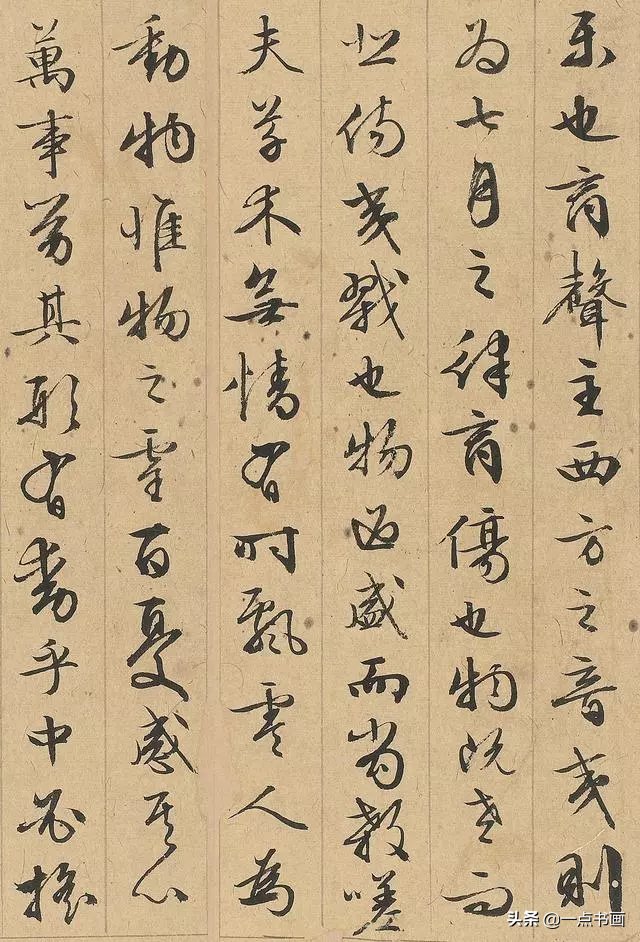 樂也商聲主西方之音夷則
為七月之律商傷也物既老而
悲傷夷戮也物過盛而當殺嗟
夫草木無情有時飄零人為
動物惟物之靈百憂感其心
萬事勞其形有動乎中必搖
头条 @一点书画